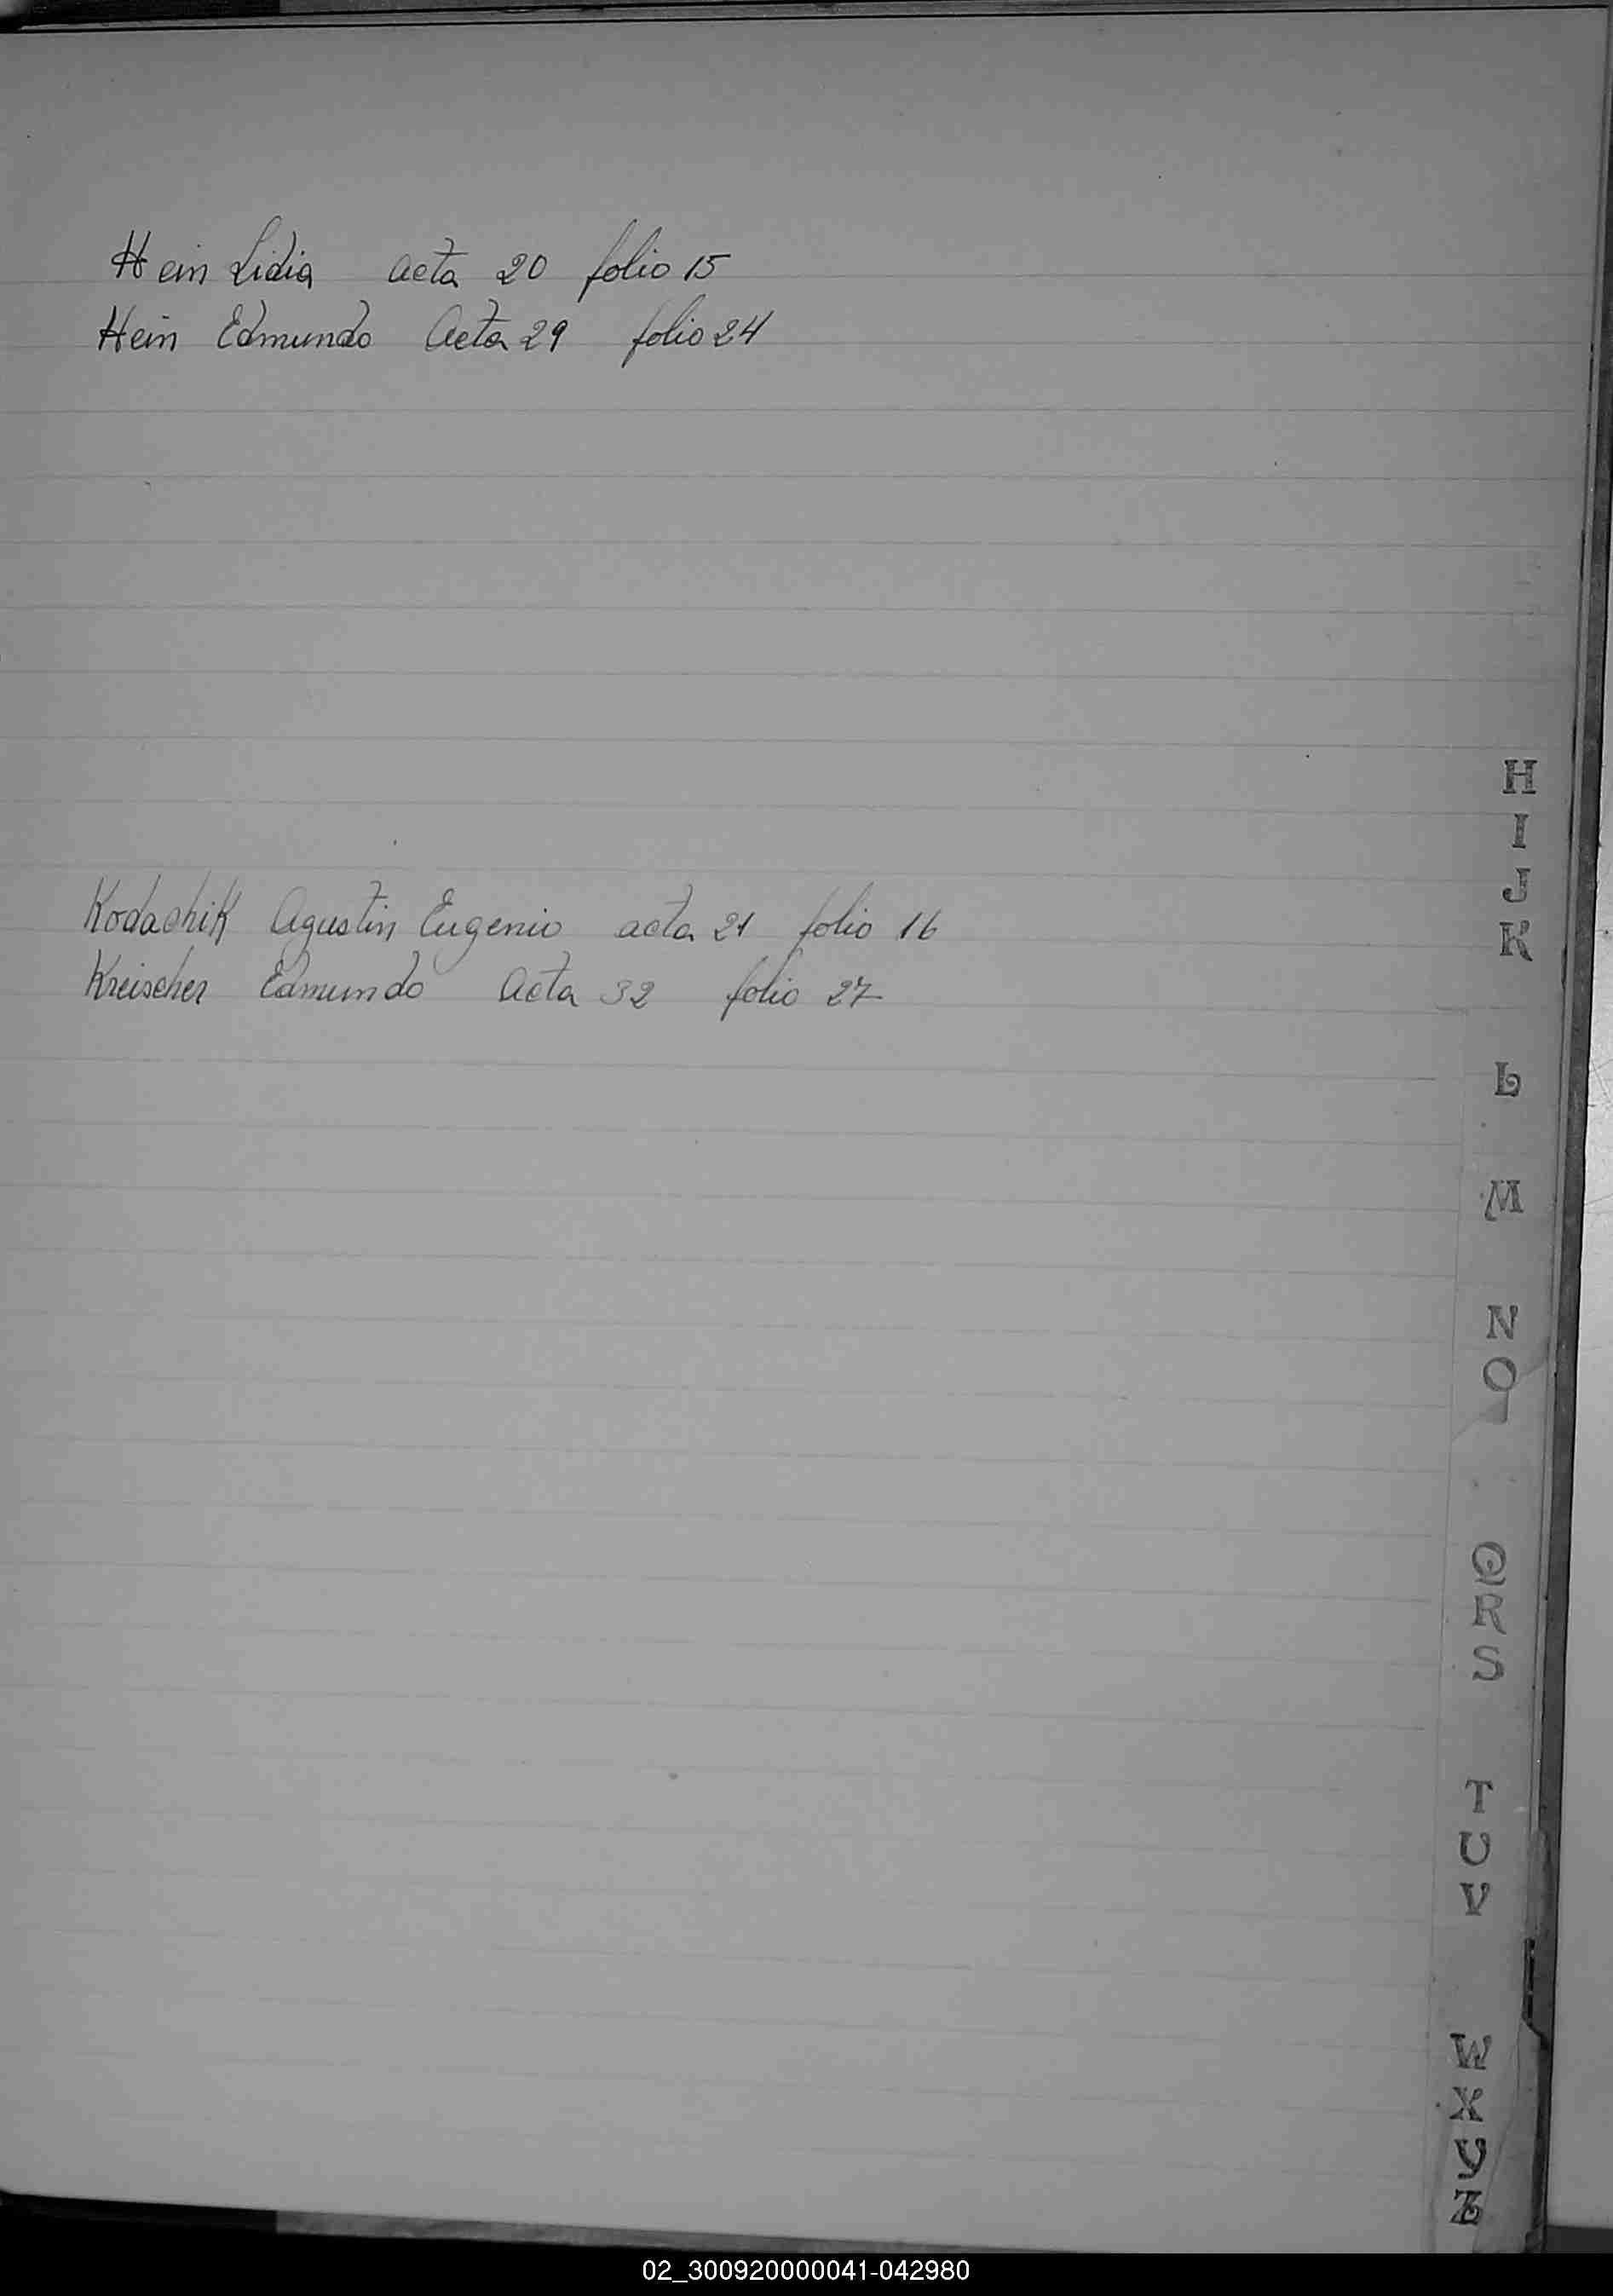 Hein Lidia acta 20 folio 15
Hein Edmundo Acta 29 folio 24
Kodachik Agustin Eugenio acta 21 folio 16
Kreischer Edmundo Acta 32 folio 27
H
I
J
K
L
M
N
O
Q
R
S
T
U
V
W
X
Y
Z
02_300920000041-042980